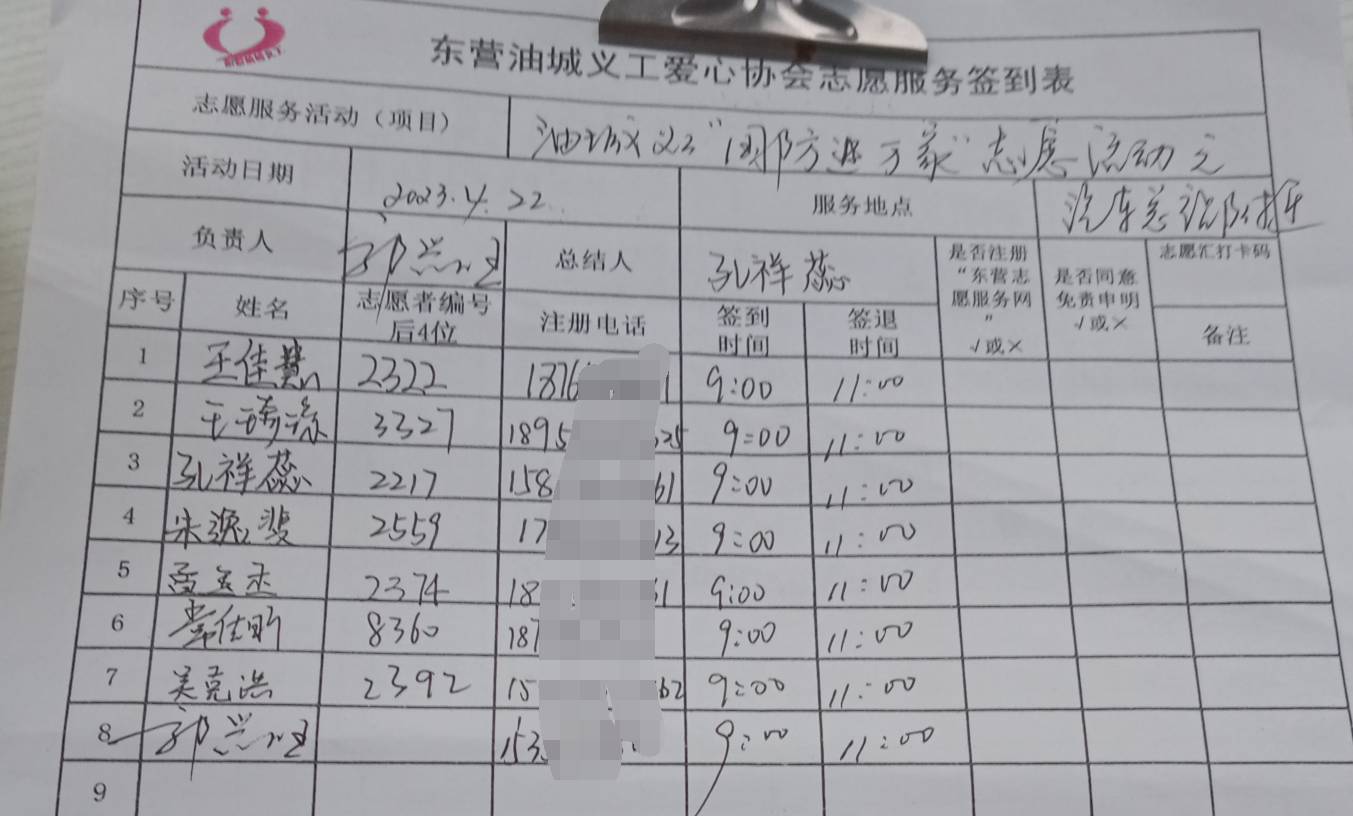 东营油城义工爱心协会志愿服务签到表
志愿服务活动（项目） 油城义工“国防进万家”志愿活动之
活动日期 2023.4.22 服务地点 汽车总站
负责人 郭 总结人 孔祥蕊 是否注册“东营志愿服务网” √或× 是否同意免责申明 √或× 志愿汇打卡码
序号 姓名 志愿者编号后4位 注册电话 签到时间 签退时间 备注
1 王佳慧 2322 1876 1 9:00 11:00
2 王琦 3327 1895 525 9:00 11:00
3 孔祥蕊 2217 158 61 9:00 11:00
4 宋逸斐 2559 17 13 9:00 11:00
5 孟玉玉 2374 18 61 9:00 11:00
6 常佳昕 8360 187 9:00 11:00
7 吴克浩 2392 15 62 9:00 11:00
8 郭 153 9:00 11:00
9